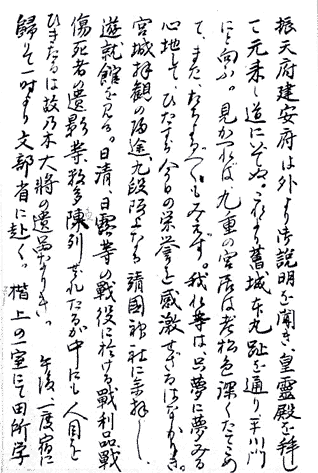 振天府建安府は外より御説明を聞き、皇霊殿を拝
して元来し道にいでぬ。これより舊城本九趾を通り、平川門
に向ふ。見かへれば、九重の宮居は老松色深くたてこめ
て、また、たちまちべくもみえず。我れ等は只夢に夢みる
心地して、ひたすら今日の栄誉を感激せざるはなかりき。
宮城拝観の帰途、九段阪上なる靖國神社に参拝し、
遊就館を見る。日清、日露等の戦役に於ける戦利品戦
傷死者の遺影等数多陳列せられたるが中にも人目を
ひきたるは故乃木大将の遺品なりき。 午後一度宿に
歸りて一時より文部省に赴く。楷上の一室にて田所学